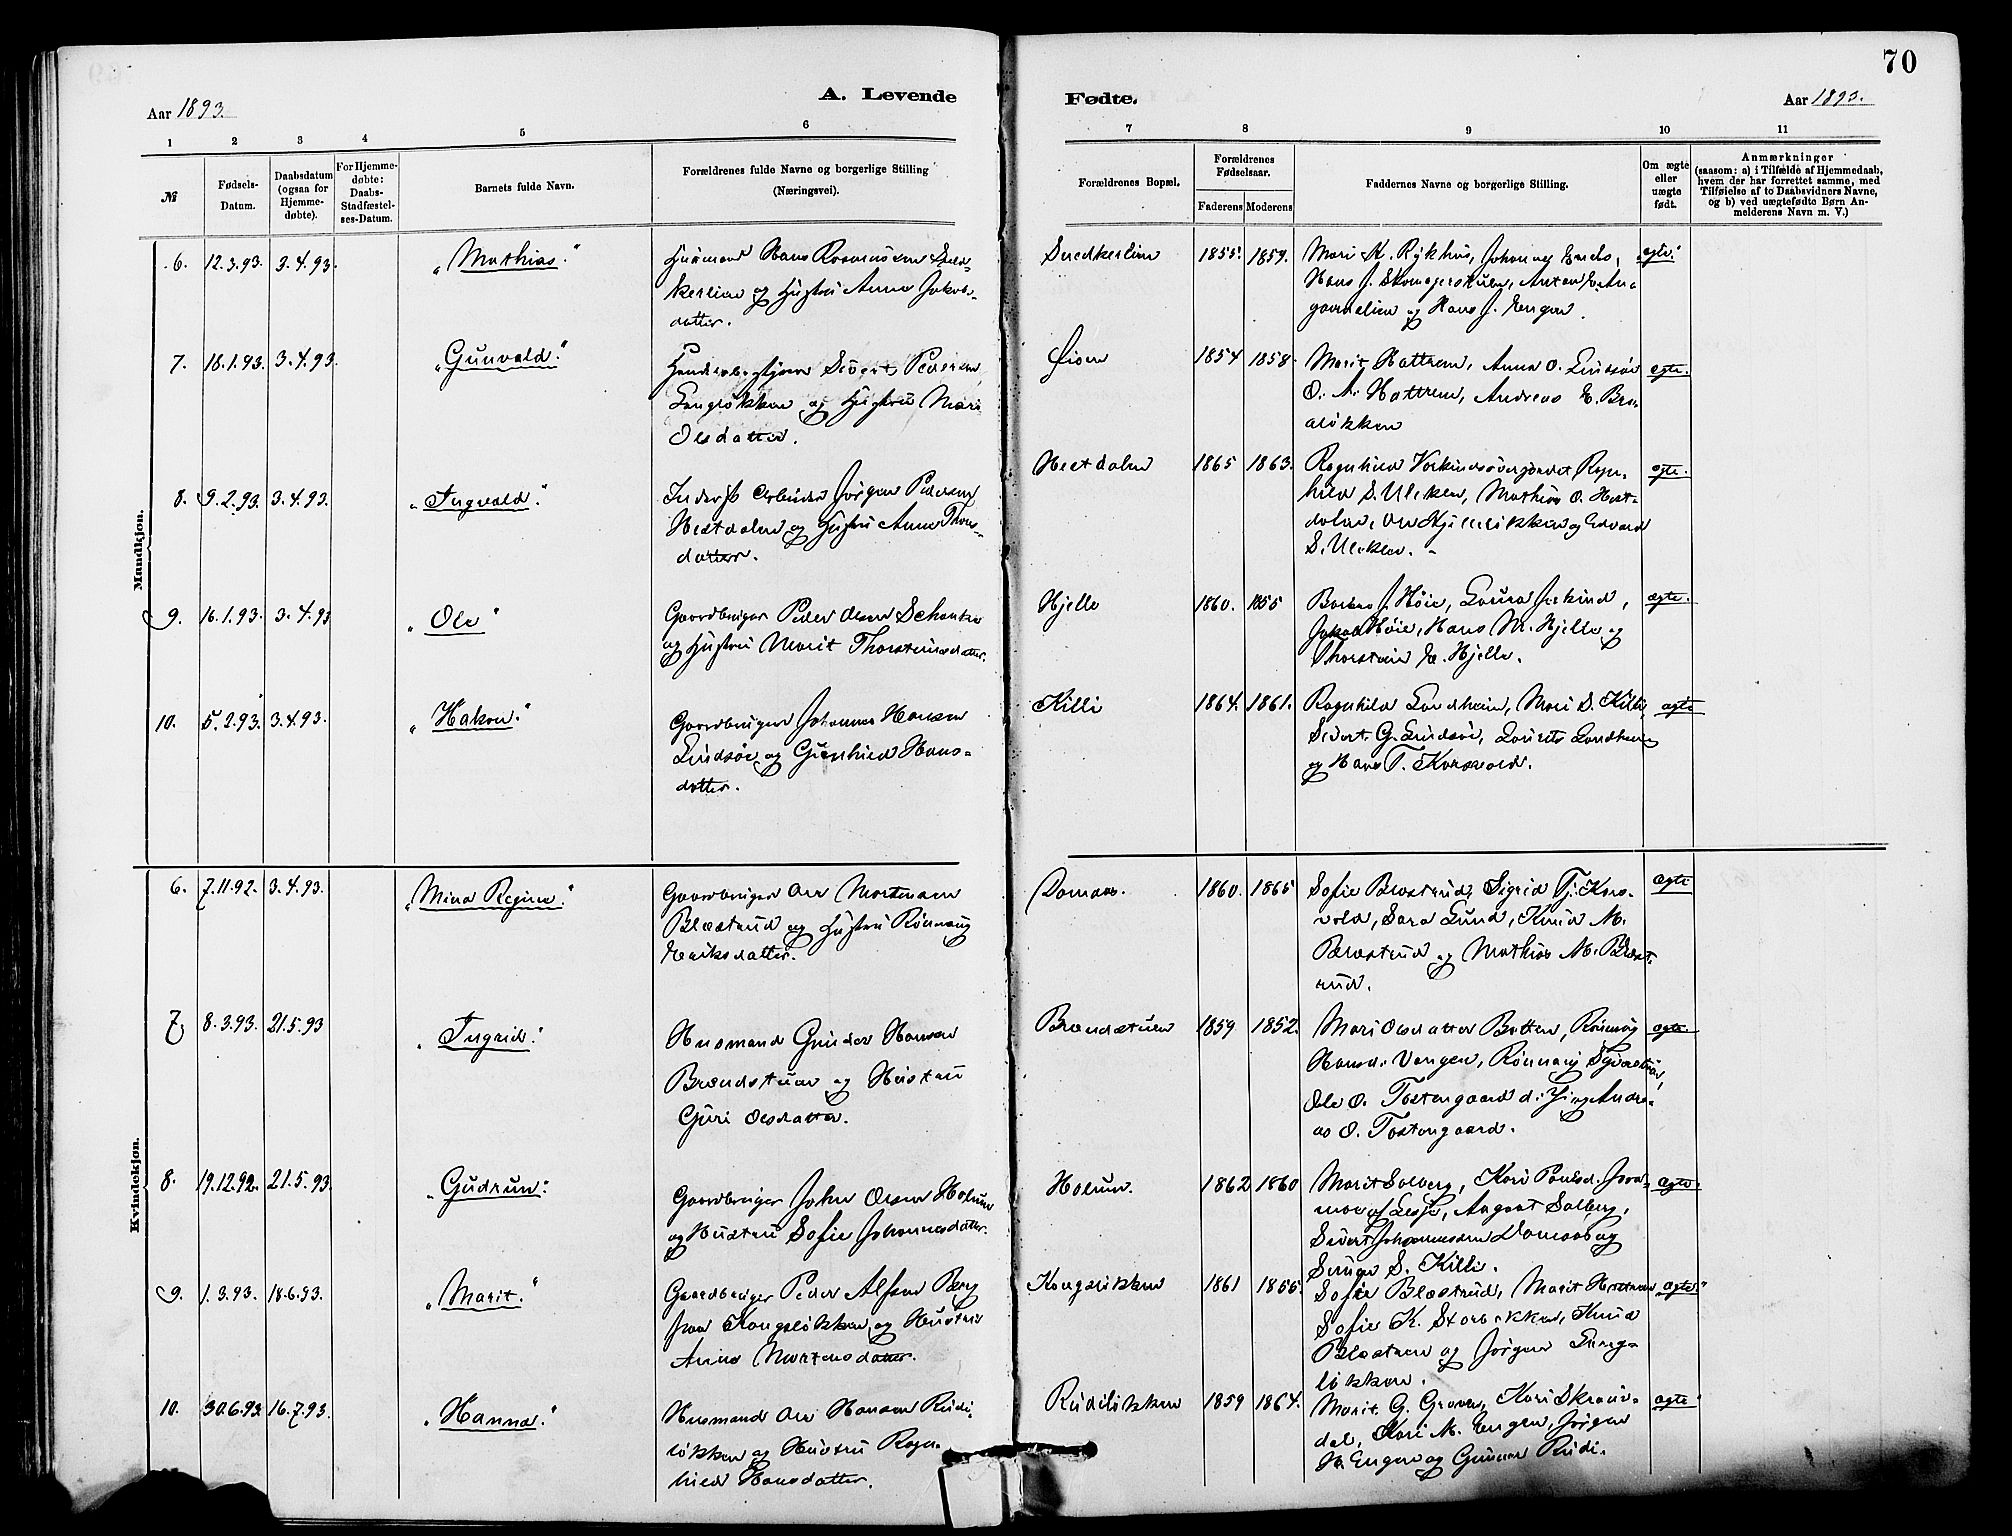 70
Aar 1893.
A. Levende
Fødte.
Aar 1893.
1 2 3 4 5 6 7 8 9 10 11
№
Fødsels-
Datum.
Daabsdatum
(ogsaa for
Hjemme-
døbte).
For Hjemme-
døbte:
Daabs-
Stadfæstel-
ses-Datum.
Barnets fulde Navn.
Forældrenes fulde Navne og borgerlige Stilling
(Næringsvei).
Forældrenes Bopæl.
Forældrenes
Fødselsaar.
Faderens Moderens
Faddernes Navne og borgerlige Stilling.
Om ægte
eller
uægte
født.
Anmærkninger
(saasom: a) i Tilfælde af Hjemmedaab,
hvem der har forrettet samme, med
Tilføielse af to Daabsvidners Navne,
og b) ved uægtefødte Børn An-
melderens Navn m. V.)
Mandkjøn.
6. 12.3.93. 3.4.93. „Mathias.“
Husmand Hans Rasmussen Sned-
kerlien og Hustru Anne Jakobs-
datter.
Snedkerlien 1855. 1859.
Hans J. Skomagerstuen, Anton
og Hans J. Engen.
ægte.
7. 16.1.93. 3.4.93. „Gunvald.“
Sivert Pedersen
og Hustru Mari
Olsdatter.
Øien 1854 1858.
Marit Hattrem, Anna O. Lindsøe
O. A. Hattrem, Andreas E. Bra-
løkken
ægte.
8. 9.2.93. 3.4.93. „Ingvald.“
Arbeider Jørgen Pedersen
Hestdalen og Hustru Anne Thors-
datter.
Hestdalen 1865 1863.
Ragnhild Ragn-
hild S. Uleklev, Mathias O. Hest-
dalen, og Edvard
S. Uleklev.
ægte.
9. 16.1.93. 3.4.93 „Ole“
Gaardbruger Peder Olsen Schanke
og Hustru Marit Thorsteinsdatter.
Hjelle 1860. 1855
Barbro J. Høie, Laura
Jakob Høie, Hans M. Hjelle og
Thorstein E. Hjelle.
ægte.
10. 5.2.93. 3.4.93. „Hakon.“
Gaardbruger Johannes Hansen
Lindsøe og Gunhild Hans-
datter.
Killi 1864. 1861.
Ragnhild Landheim, Mari S. Killi,
Sivert G. Lindsøe, Laurits Landheim
og Hans T. Korsvold.
ægte
Kvindekjøn.
6. 7.11.92. 3.4.93. „Mina Regine.“
Gaardbruger Ole Mortensen
Blæstrud og Hustru Rønnaug
Eriksdatter.
Domaas. 1860. 1865
Sofie Blæstrud, Sigrid Tj. Kors-
vold, Sara Lund, Knud M.
Blæstrud og Mathias M. Blæst-
rud.
ægte
7. 8.3.93. 21.5.93 „Ingrid.“
Husmand Gunder Hansen
Brændstuen og Hustru
Guri Olsdatter.
Brændstuen 1859 1852.
Mari Olsdatter Botten, Rønnaug
Hansd. Vangen, Rønnaug
Ole O. Tostengaard d. Yng. Andre-
as O. Tostengaard.
ægte.
8. 19.12.92. 21.5.93. „Gudrun.“
Gaardbruger John Olsen Holum
og Hustru Sofie Johannesdatter.
Holum. 1862 1860
Marit Solberg, Kari Paulsd. Jora-
moe af Lesje, August Solberg,
Sivert Johannessen Domaas og
S. Killi.
ægte.
9. 1.3.93. 18.6.93. „Marit.“
Gaardbruger Peder Alfsen Berg
fra Kongsløkken og Hustru
Anne Mortensdatter.
Kongsløkken 1861 1855.
Sofie Blæstrud, Marit Hattrem,
Sofie K. Storløkken, Knud
Blæstrud og Jørgen
løkken.
ægte.
10. 30.6.93. 16.7.93. „Hanna.“
Husmand Ole Hansen Rudi-
løkken og Hustru Ragn-
hild Hansdatter.
Rudiløkken 1859 1864.
Marit G. Graven, Kari
dal, Kari M. Engen, Jørgen
H. Engen og Gunnar Rudi.
ægte